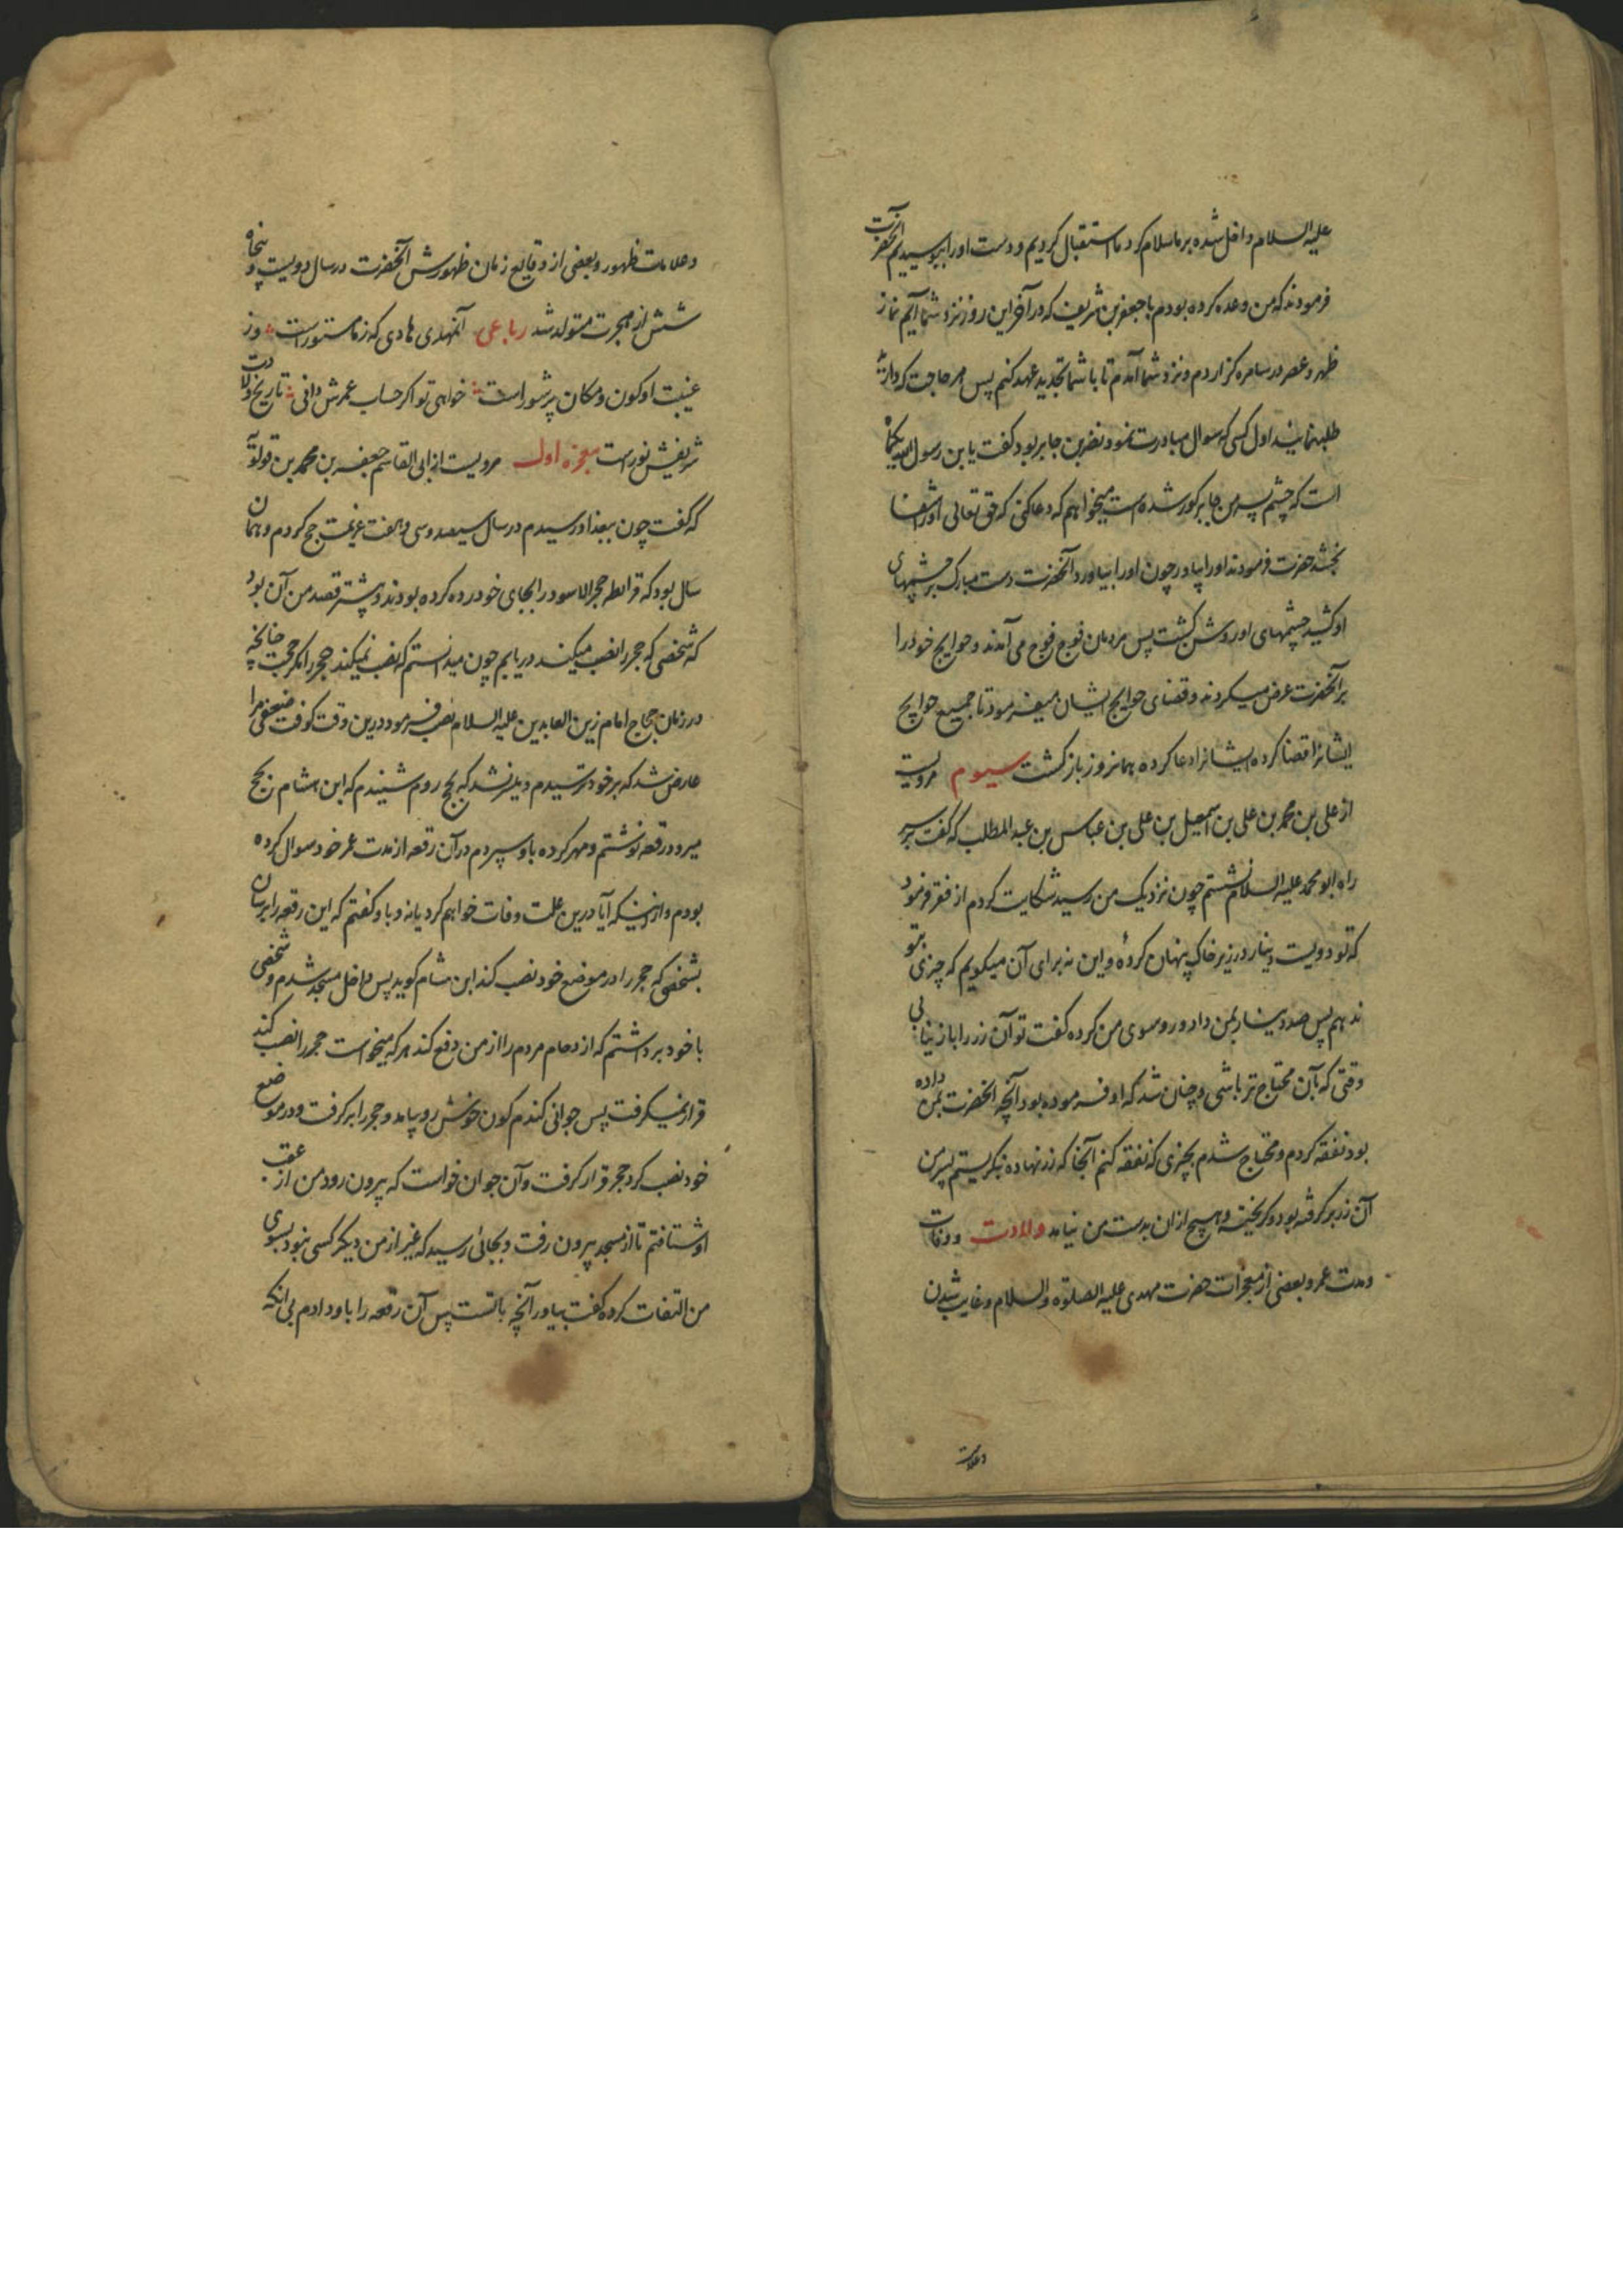 علیه السلام داخل شده بر ما سلام کرد ما استقبال کردیم و دست او را ببوسیدیم آنحضرت
فرمودند که من وعده کرده بودم با جعفر بن شریف که در آخر این روز نزد شما آیم نماز
ظهر و عصر در سامره گزاردم و نزد شما آمدم تا با شما تجدید عهد کنم پس هر حاجت که دارید
طلب نمایید اول کسی که سوال مبادرت نمود نضر بن جابر بود گفت یا بن رسول الله یکماه
است که چشم پسر من جابر کور شده است میخواهم که دعا کنی که حق تعالی او را شفا
بخشد حضرت فرمودند او را بیاور چون او را بیاورد آنحضرت دست مبارک بر چشمهای
او کشید چشمهای او روشن گشت پس مردمان فوج فوج می آمدند و حوایج خود را
بر آنحضرت عرض میکردند و قضای حوایج ایشان میفرمود تا جمیع حوایج
ایشانرا قضا کرده ایشانرا دعا کرده همانروز باز گشت سیوم مرویست
از علی بن محمد بن علی بن اسمعیل بن علی بن عباس بن عبد المطلب که گفت بر سر
راه ابو محمد علیه السلام نشستم چون نزدیک من رسید شکایت کردم از فقر فرمود
که تو دویست دینار در زیر خاک پنهان کردهٔ و این نه برای آن میگویم که چیزی بتو
ندهم پس صد دینار بمن داد و رو سوی من کرده گفت تو آن زر را باز نیابی
وقتی که بآن محتاج تر باشی و چنان شد که او فرموده بود آنچه آنحضرت بمن داده
بود نفقه کردم و محتاج شدم بچیزی که نفقه کنم آنجا که زر نهاده نگریستم پسر من
آن زر بر گرفته بود و گریخته و هیچ ازان بدست من نیامد ولادت و وفات
و مدت عمر و بعضی از معجزات حضرت مهدی علیه الصلوة والسلام و غایب شدن
و علامت
و علامات ظهور و بعضی از وقایع زمان ظهورش آنحضرت در سال دویست و پنجاه
شش از هجرت متولد شد رباعی آنمهدی هادی که ز ما مستور است وز
غیبت او کون و مکان پر شور است خواهی تو اکر حساب عمرش دانی تاریخ ولادت
شریفش نور است معجزه اول مرویست از ابی القاسم جعفر بن محمد بن قولویه
که گفت چون ببغداد رسیدم در سال سیصد و سی و هفت عزیمت حج کردم و همان
سال بود که قرامطه حجر الاسود را بجای خود رد کرده بودند و بیشتر قصد من آن بود
که شخصی که حجر را نصب میکند دریابم چون میدانستم که نصب نمیکند حجر را مگر حجت چنانچه
در زمان حجاج امام زین العابدین علیه السلام نصب فرمود درین وقت کوفت ضعفی مرا
عارض شد که بر خود ترسیدم و میسر نشد که بحج روم شنیدم که ابن هشام بحج
میرود رقعه نوشتم و مهر کرده باو سپردم در آن رقعه از مدت عمر خود سوال کرده
بودم و از اینکه آیا درین علت وفات خواهم کرد یا نه و باو گفتم که این رقعه را برسان
بشخصی که حجر را در موضع خود نصب کند ابن هشام گوید پس داخل مسجد شدم و شخصی
با خود برداشتم که ازدحام مردم را از من دفع کند هر که میخواست حجر را نصب کند
قرار نمیگرفت پس جوانی گندم گون خوش رو بیامد و حجر را بر گرفت و در موضع
خود نصب کرد حجر قرار گرفت و آن جوان خواست که بیرون رود من از عقب
او شتافتم تا از مسجد بیرون رفت و بجائی رسید که غیر از من دیگر کسی نبود بسوی
من التفات کرده گفت بیاور آنچه با تست پس آن رقعه را باو دادم بی آنکه